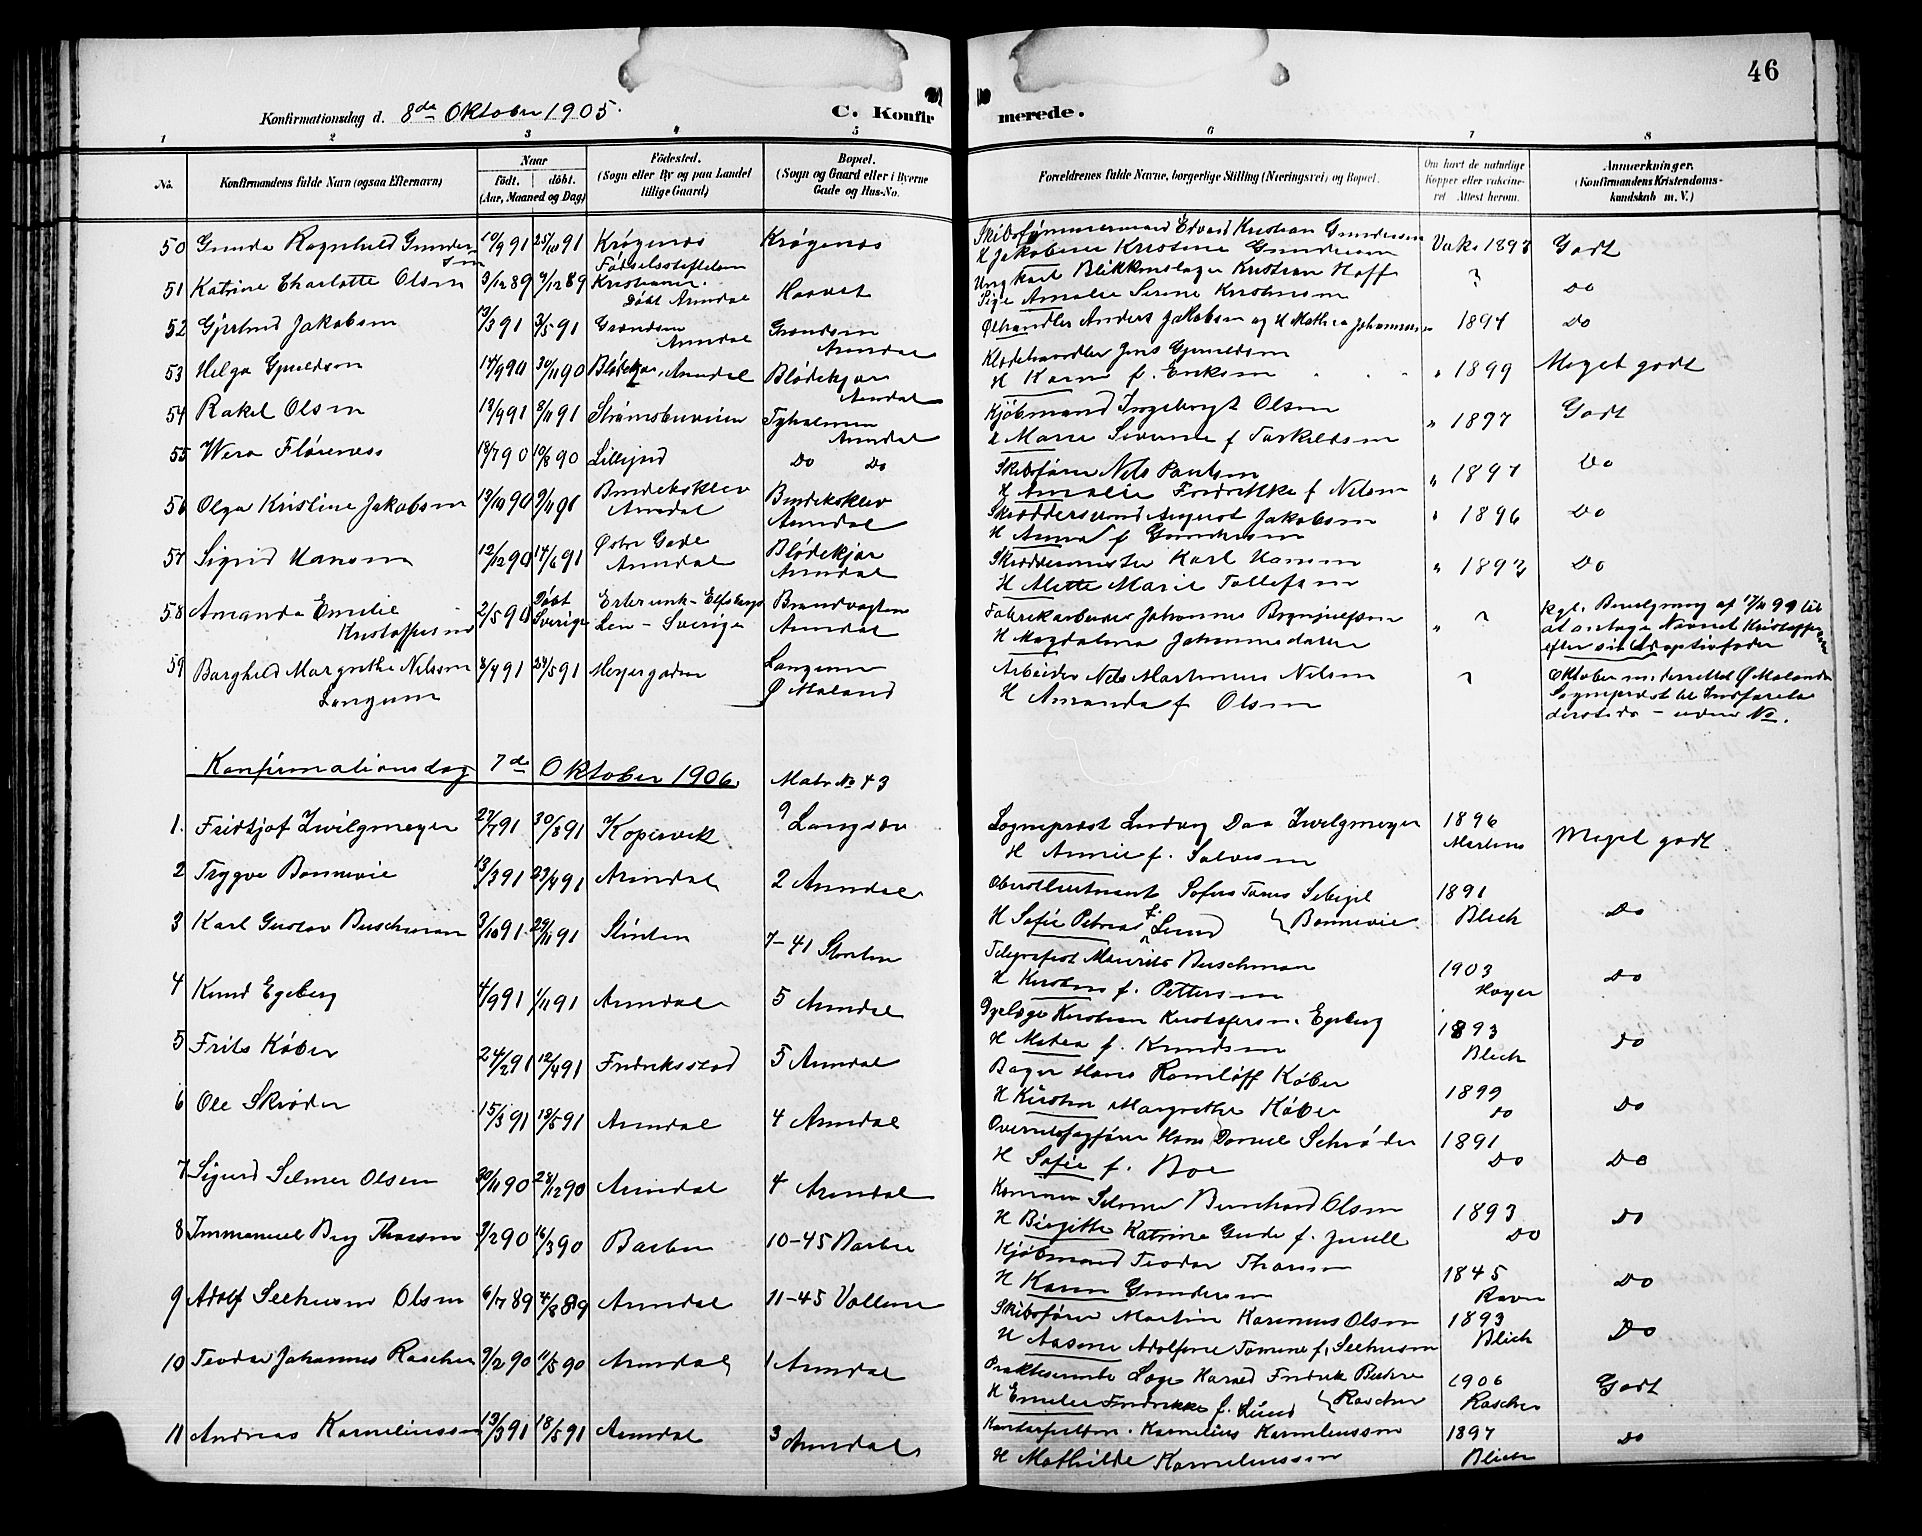 46
Konfirmationsdag d. 8de Oktober 1905.
C. Konfirmerede.
1 2 3 4 5 6 7 8
No.
Konfirmandens fulde Navn (ogsaa Efternavn)
Naar
født. døbt.
(Aar, Maaned og Dag)
Fødested.
(Sogn eller By og paa Landet
tillige Gaard)
Bopæl.
(Sogn og Gaard eller i Byerne
Gade og Hus-No.
Forældrenes fulde Navne, borgerlige Stilling (Næringsvei) og Bopæl.
Om havt de naturlige
Kopper eller vaccine-
ret Attest herom.
Anmærkninger.
(Konfirmandens Kristendoms-
kundskab m. V.)
50 Gunda Ragnhild Gunder
sen 10/9 91 25/10 91 Krøgenes Krøgenes
Skibstømmermand Edvard Kristian Gundersen
H Jakobine Kristine Gundersen Vaks 1897 Godt
51 Katrine Charlotte Olsen 3/12 89 9/12 89 Fødselsstiftelsen
Kristiania.
Døbt Arendal Haavet
Ungkarl Blikkenslager Kristian Hoff
Pige Amalie Serine Kristensen ? Do
52 Gjertrud Jakobsen 13/3 91 3/5 91 Grændsen
Arendal Grændsen
Arendal
Ølhandler Anders Jakobsen og H Mathea Johannesen 1894 Do
53 Helga Gjeruldsen 14/9 90 30/11 90 Blødekjær, Arendal Blødekjær
Arendal
Klædehandler Jens Gjeruldsen
H Karen f. Eriksen " 1899 Meget godt
54 Rakel Olsen 12/9 91 8/11 91 Strømsbuveien Tyholmen
Arendal
Kjøbmand Ingebregt Olsen
H Marie Severine f Torkildsen " 1897 Godt
55 Wera Flørenæss 18/7 90 10/8 90 Lillesand Do Do
Skibsfører Nils Paulsen
H Amalie Fredrikke f Nilsen " 1897 Do
56 Olga Kristine Jakobsen 13/10 90 9/11 90 Bendiksklev
Arendal Bendiksklev
Arendal
Skræddersvend August Jakobsen
H Anna f Gundersen " 1896 Do
57 Sigrid Hansen 12/12 90 14/6 91 Østre Gade
Arendal Blødekjær
Arendal
Skræddermester Karl Hansen
H Alette Marie Tollefsen " 1897 Do
58 Amanda Emilie
Kristoffersen 2/5 90 Døbt
Sverige
Len - Sverige Brandvagten
Arendal
Fabrikarbeider Johannes Brynjulfsen
H Magdalena Johannesdatter " ?
Kgl. Bevilgning af 17/11 99 til
at antage Navnet Kristoffersen
efter sin Adoptivfader
59 Borghild Margrethe Nilssen
Langum 8/4 91 24/5 91 Meyergaden Langum
Ø Moland
Arbeider Nils Martinius Nilsen
H Amanda f Olsen ?
Oktober underrettet Ø Molands
Sogneprest til Indførelse
dersteds - uden No.
Konfirmationsdag 7de Oktober 1906. Matr No 43
1. Fridtjof Zwilgmeyer 27/7 91 30/8 91 Kopervik 9 Langsæ
Sogneprest Ludvig Daa Zwilgmeyer
H Annie f. Salvesen 1896
Martens Meget godt
2 Trygve Bonnevie 13/3 91 23/4 91 Arendal 2 Arendal
Oberstleutnant
H Sofie Petrea f. Lund } Bonnevie. 1891
Blich Do
3 Karl Gustav Buschman 3/10 91 29/11 91 Stinten 7-41 Stinten
Telegrafist Maurits Buschman
H Kirsten f. Pettersen 1903
Høyer Do
4 Knud Egeberg 4/9 91 1/11 91 Arendal 5 Arendal
Dyrlæge Kristian Kristofersen Egeberg
H Matea f. Knudsen 1893
Blich Do
5 Frits Køber 24/2 91 12/4 91 Fredriksstad 5 Arendal
Bager Hans Romløff Køber
H Kirsten Margrethe Køber 1899
Do Do
6 Ole Skrøder 15/3 91 18/5 91 Arendal 4 Arendal
Overretssagfører Hans Daniel Schrøder
H Sofie f. Boe 1891
Do Do
7 Sigurd Selmer Olsen 30/11 90 28/12 90 Arendal 4 Arendal
Selmer Bernhard Olsen
H Birgitte Katrine Gude f. Juell 1893
Do Do
8 Immanuel Berg Thorsen 3/2 90 16/3 90 Barbu 10-45 Barbu
Kjøbmand Teodor Thorsen
H Karen Gundersen 1845
Ravn Do
9 Adolf Seehusen Olsen 6/7 89 4/8 89 Arendal 11-45 Vollene
Skibsfører Martin Rasmus Olsen
H Aasene Adolfine Tomine f. Seehusen 1893
Blich Do
10 Teodor Johannes Rascher 9/2 90 11/5 90 Arendal 1 Arendal
Praktiserende Læge Harald Fredrik
H Emilie Fredrikke f. Lund } Rascher 1906
Rascher Godt
11 Andreas Korneliussen 13/3 91 18/5 91 Arendal 3 Arendal
Kornelius Korneliussen
H Mathilde Korneliussen 1897
Blich Do